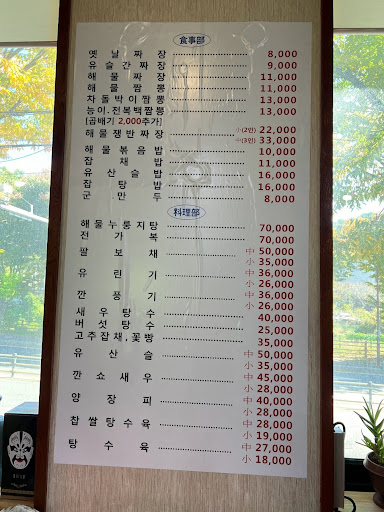 食事部
옛날짜장 8,000
유슬간짜장 9,000
해물짜장 11,000
해물짬뽕 11,000
차돌박이짬뽕 13,000
능이.전복백짬뽕 13,000
[곱배기 2,000추가]
해물쟁반짜장 小(2인) 22,000
中(3인) 33,000
해물볶음밥 10,000
잡채밥 11,000
유산슬밥 16,000
잡탕밥 16,000
군만두 8,000
料理部
해물누룽지탕 70,000
전가복 70,000
팔보채 中 50,000
小 35,000
유린기 中 36,000
小 26,000
깐풍기 中 36,000
小 26,000
새우탕수 40,000
버섯탕수 25,000
고추잡채,꽃빵 35,000
유산슬 中 50,000
小 35,000
깐쇼새우 中 45,000
小 28,000
양장피 中 40,000
小 28,000
찹쌀탕수육 中 28,000
小 19,000
탕수육 中 27,000
小 18,000